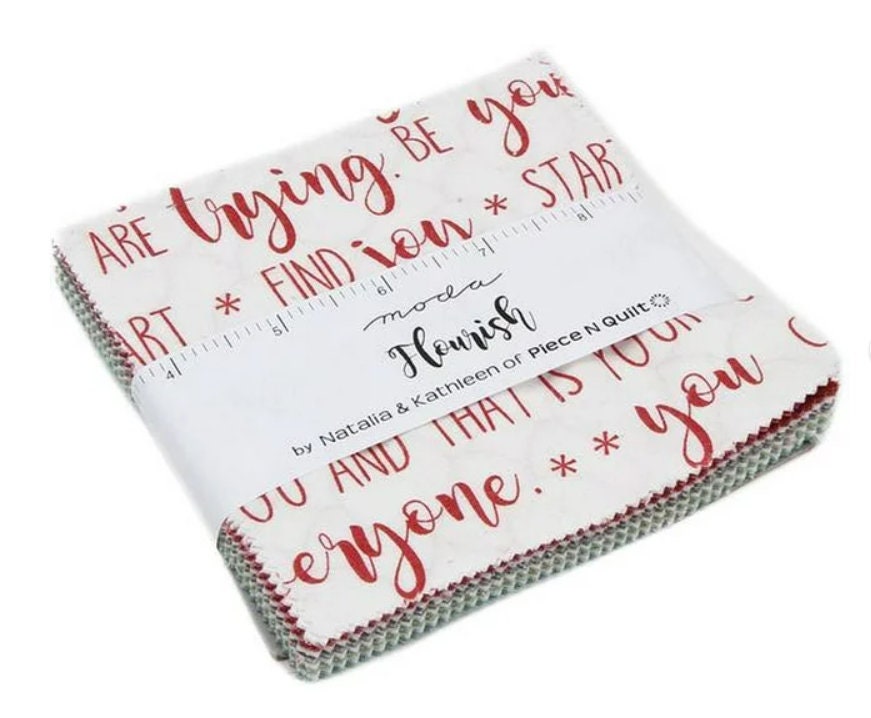 BE you
ARE trying.
* STAR
ART * FIND you
4 5 6 7 8
moda
Flourish
by Natalia & Kathleen of Piece N Quilt
AND THAT IS YOUR
eryone. * * you